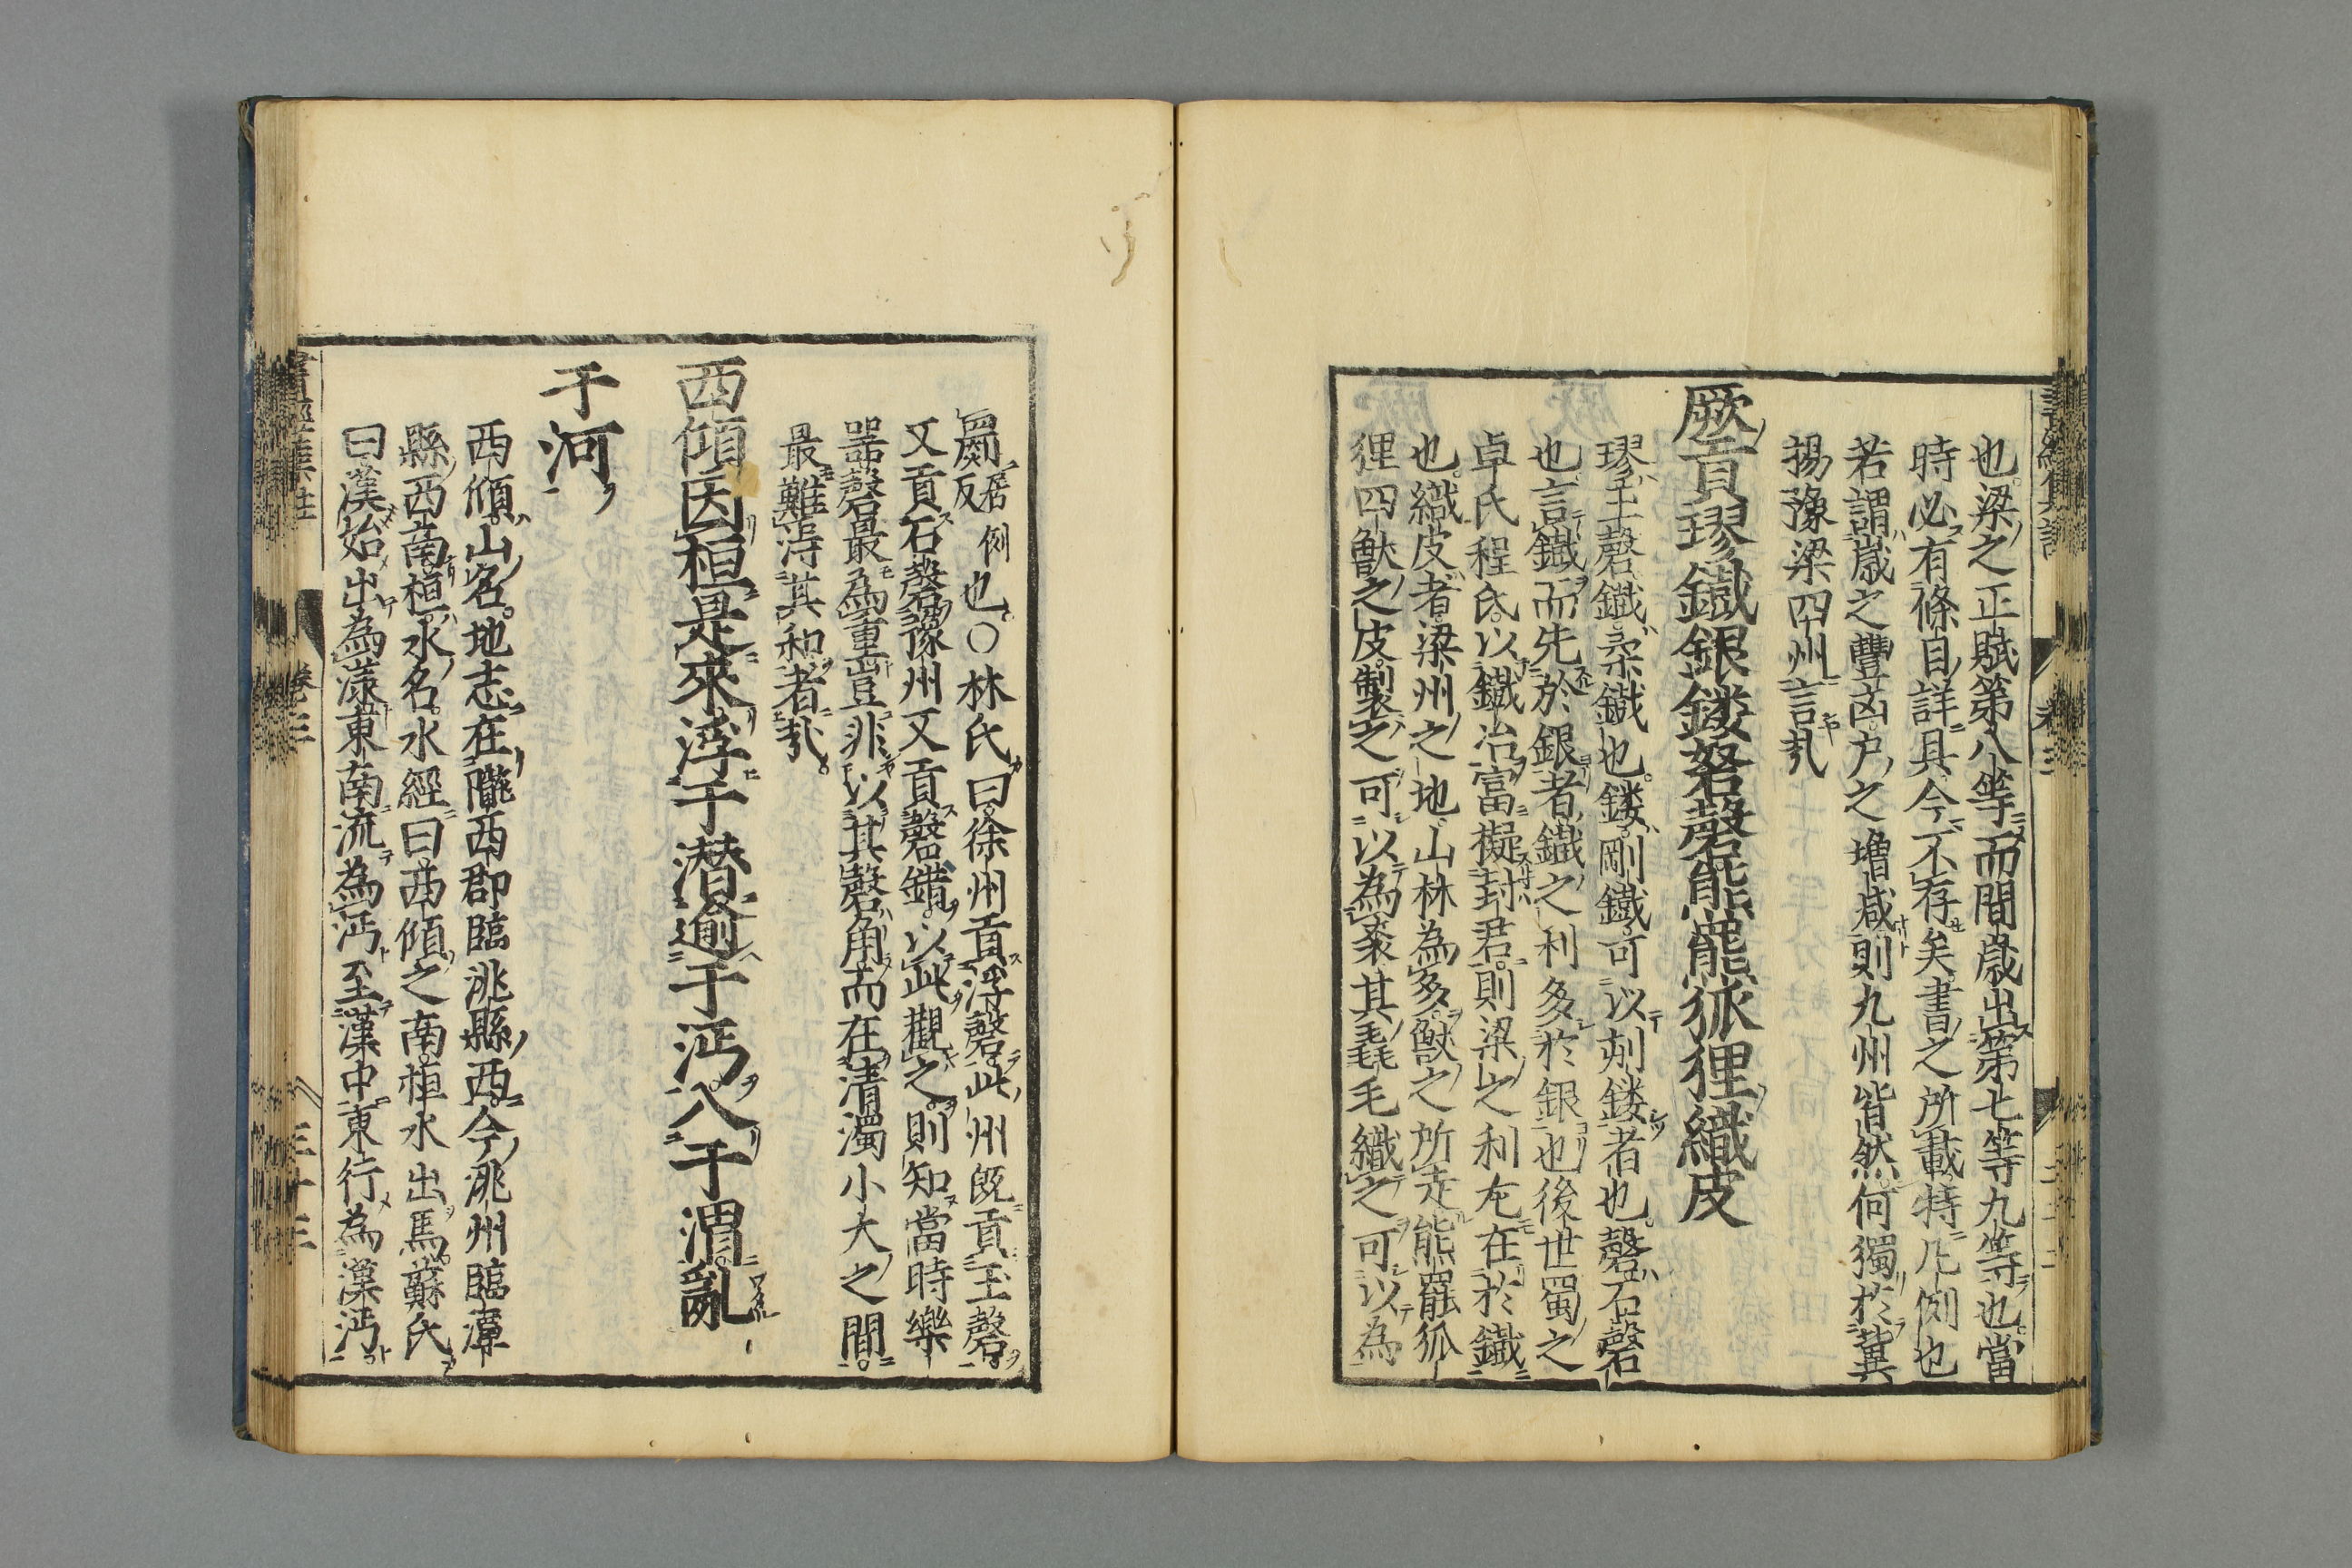 也梁之正賦第八等而間歳出第七等九等也當
時必有條目詳具今不存矣書之所載特凡例也
若謂歳之豐凶户之増減則九州皆然何獨於冀
揚豫梁四州言哉
厥貢璆鐵銀鏤砮磬熊羆狐狸織皮
璆玉磬鐵柔鐵也鏤剛鐵可以刻鏤者也磬石磬
也言鐵而先於銀者鐵之利多於銀也後世蜀之
卓氏程氏以鐵冶富擬封君則梁之利尤在於鐵
也織皮者梁州之地山林為多獸之所走熊羆狐
狸四獸之皮製之可以為裘其毳毛織之可以為
罽居例反也○林氏曰徐州貢浮磬此州既貢玉磬
又貢石磬豫州又貢磬錯以此觀之則知當時樂
噐磬最為重豈非以其磬角而在清濁小大之間
最難得其和者哉
西傾因桓是來浮于潜逾于沔入于渭亂
于河
西傾山名地志在隴西郡臨洮縣西今洮州臨潭
縣西南桓水名水經曰西傾之南桓水出焉蘇氏
曰漢始出為漾東南流為沔至漢中東行為漢沔
卷三
三十三